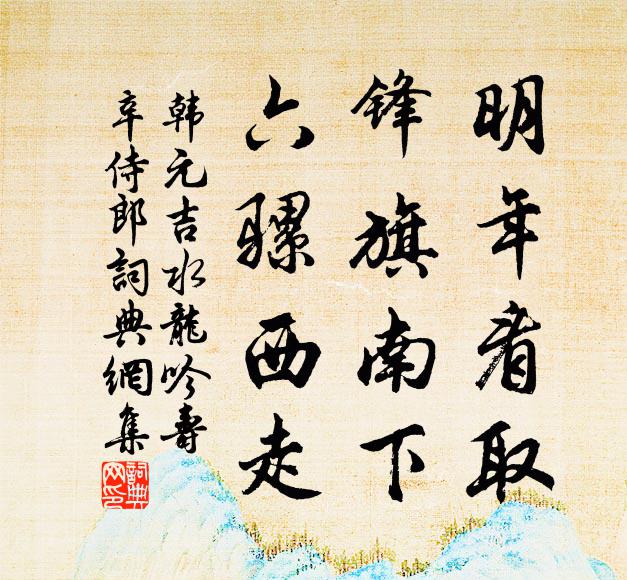 明年看取
锋旗南下
六骡西走
韩元吉水龍吟寿
辛侍郎詞典網集
詞典网印